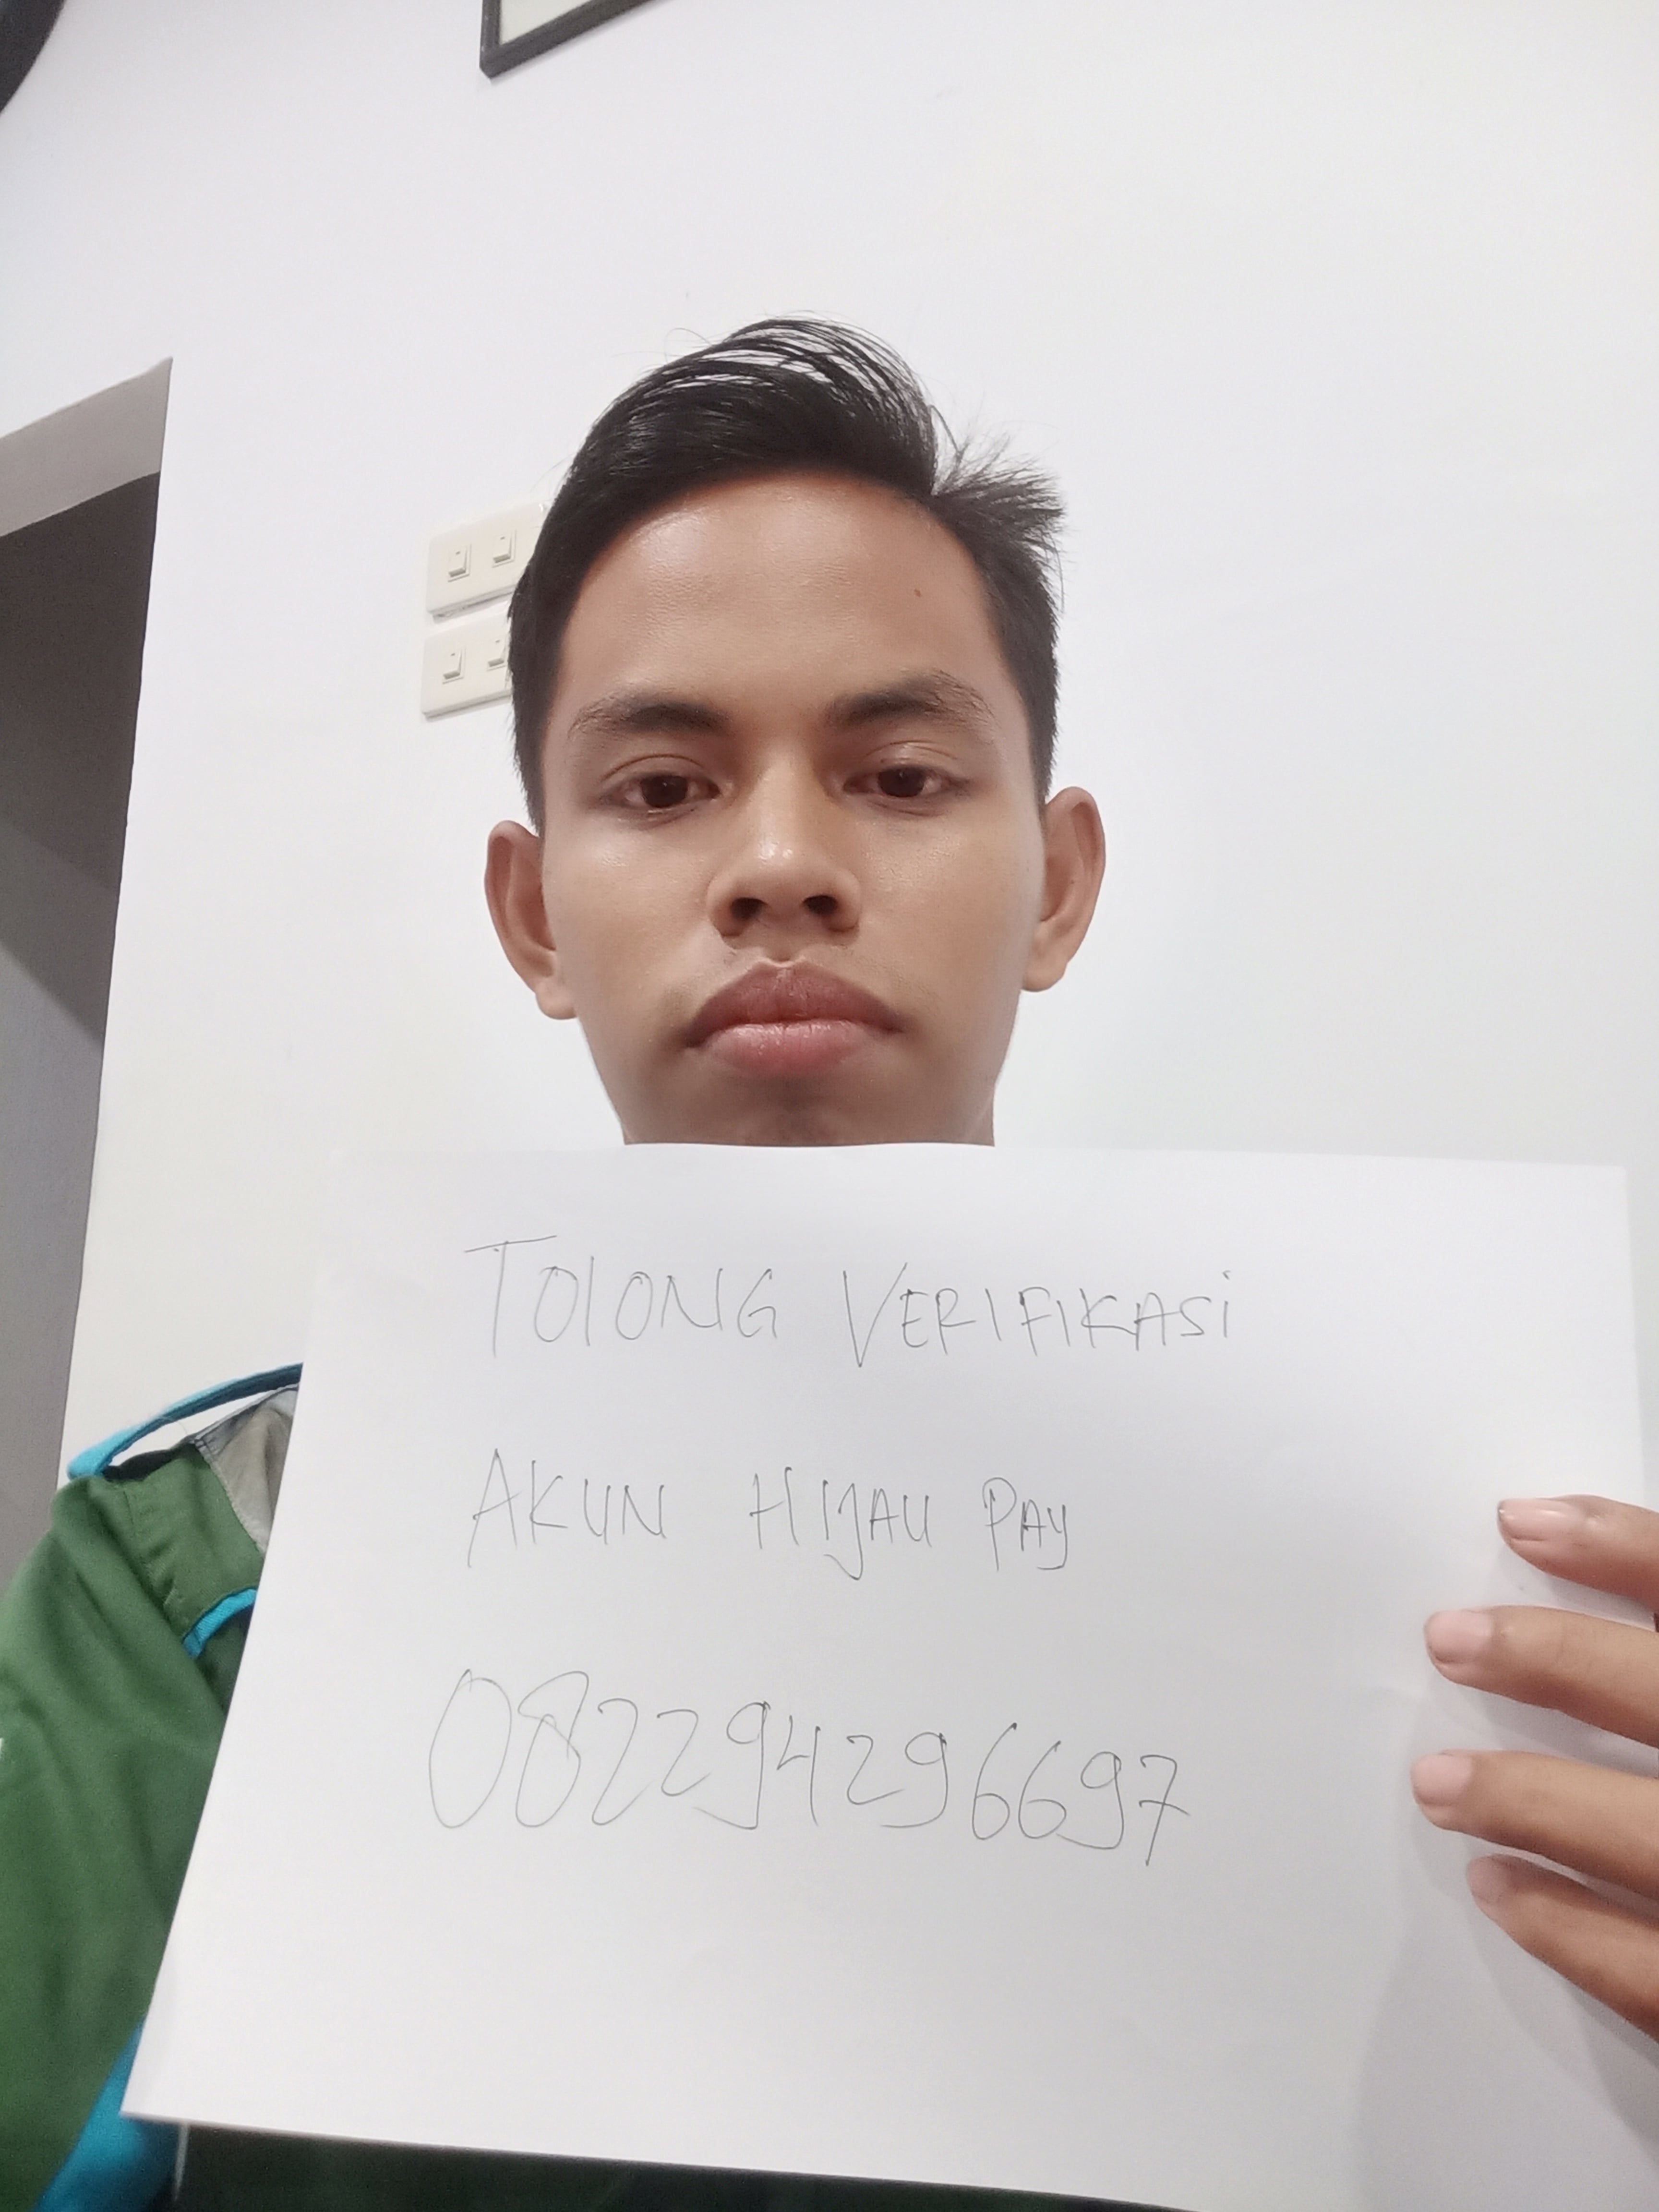 TOlONG VERIFIKASi
AKUN HIJAU PAY
082294296697